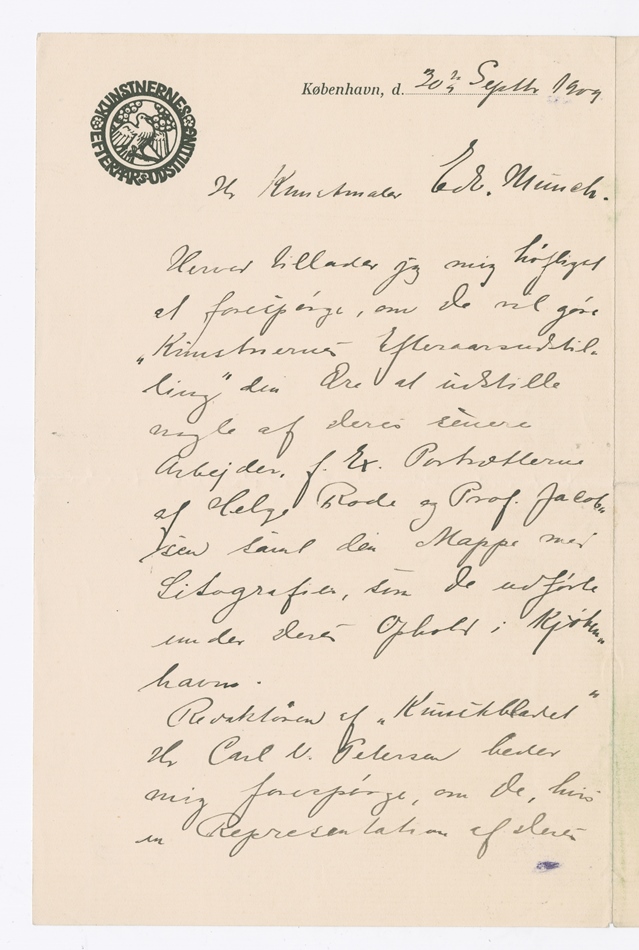 KUNSTNERNES EFTERAARSUDSTILLING
København, d. 30 Septbr 1909
Hr Kunstmaler Edv. Munch.
Herved tillader jeg mig høfligst
at forespørge, om De vil gøre
„Kunstnernes Efteraarsudstil-
ling" den Ære at udstille
nogle af deres senere
Arbejder, f. Ex. Portrætterne
af Helge Rode og Prof. Jacob„
sen samt den Mappe med
Litografier, som De udførte
under deres Ophold i Kjøben„
havn.
Redaktøren af „Kunstbladet"
Hr Carl V. Petersen beder
mig forespørge, om De, hvis
en Representation af deres